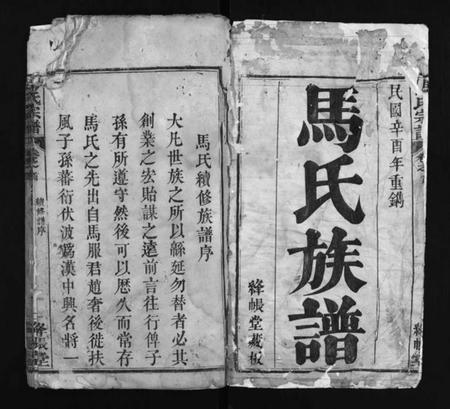 民國辛酉年重鐫
馬氏族譜
絳帳堂藏板
氏宗譜
卷之首
絳帳堂
馬氏續修族譜序
大凡世族之所以緜延勿替者必其
創業之宏貽謀之遠前言往行俾子
孫有所遵守然後可以歷久而常存
馬氏之先出自馬服君趙奢後徙扶
風子孫蕃衍伏波為漢中興名將一
氏宗譜
卷之首
續修譜序
絳帳堂